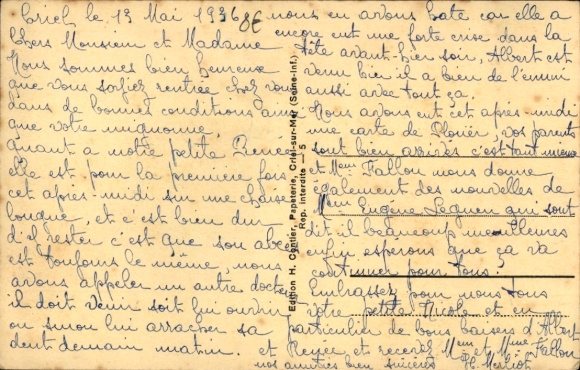 Criel le 13 Mai 1936
Chers Monsieur et Madame
Nous sommes bien heureux
que vous soyiez rentrée chez vous
dans de bonnes conditions ainsi
que votre mignonne.
Quant a notre petite
elle est pour la première fois
cet après-midi sur une chaise
longue, et c'est bien dur
d'y rester c'est que son abcé
est toujours le même, nous
avons appeler un autre docteur
il doit venir soit lui ouvrir
ou sinon lui arracher sa
dent demain matin.
nous en avons hate car elle a
encore eut une forte crise dans la
tête avant-hier soir, Albert est
venu hier il a bien de l'ennui
aussi avec tout ça.
Nous avons eut cet après-midi
une carte de vos parents
sont bien arrivés c'est tant mieux
et Mme Fallou nous donne
également des nouvelles de
Mme Eugène qui sont
dit il beaucoup meilleures
enfin espérons que ça va
continuer pour tous.
Embrassez pour nous tous
votre petite Nicole et en
particulier de bons baisers d'Albert
et Renée et recevez Mr et Mme Fallou
nos amitiés bien sincères
Edition H. Contier, Papeterie, Criel-sur-Mer (Seine-Inf.)
Rep. interdite — 5